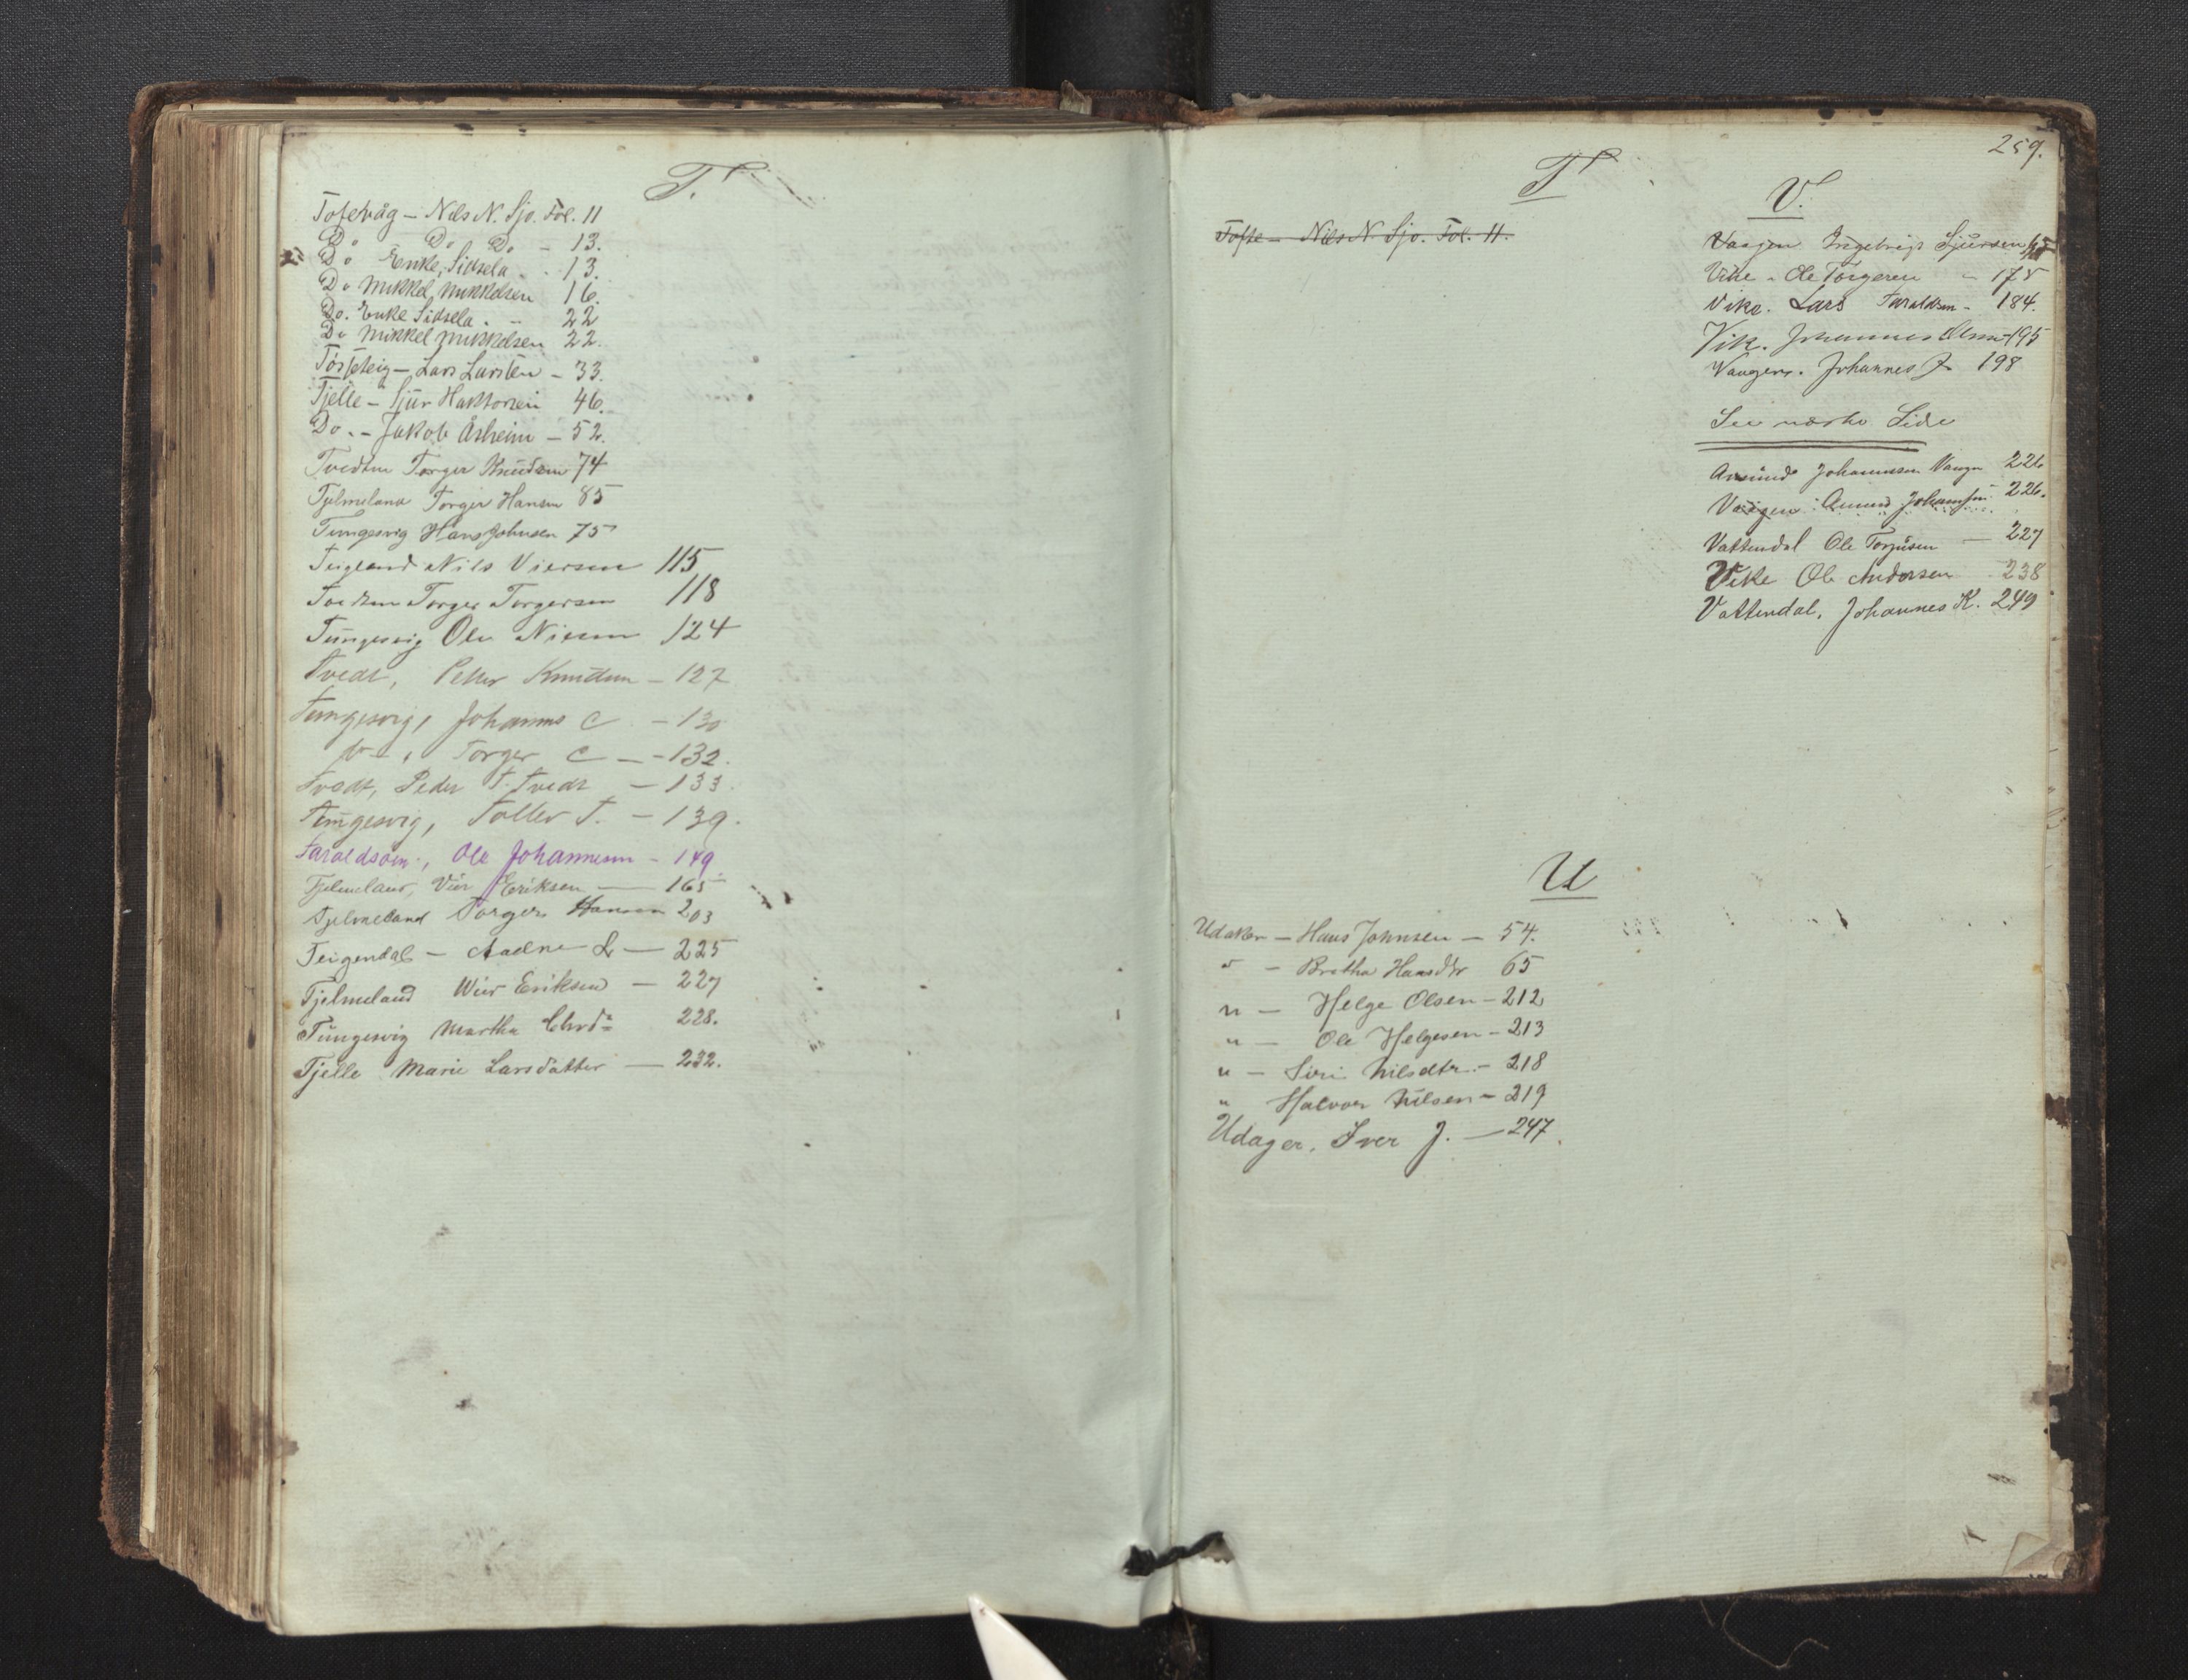 T.
Toftevåg – Nils N. Sjo. Fol. 11
Do Do Do – 13.
Do Enke, Sidsela . . 13.
Do Mikkel Mikkelsen 16.
Do. Enke Sidsela . – 22
Do Mikkel Mikkelsen 22.
– Lars Larsen – 33.
Tjelle – Sjur Haktorsen 46.
Do. – Jakob Åsheim – 52.
Tvedten Torger Knudsen 74
Tjelmeland Torger Hansen 85
Tungesvig Hans Johnsen 75
Teigland Nils Viersen 115
Torger Torgersen 118
Tungesvig Ole 124
Tvedt, Peder Knudsen – 127
Tungesvig, Johannes C – 130
do – , Torger C – – 132.
Tvedt, Peder T. Tvedt – 133.
Tungesvig, Tollev T. – 139.
Taraldsøen, Ole Johannesen – 149
Tjelmeland, Vier Eriksen — 165
Tjelmeland Torger Hansen 203
Teigendal – Aadne L — 225
Tjelmeland Wier Eriksen — 227
Tungesvig Martha Chrd. 228.
Tjelle Marie Larsdatter — 232.
259.
T
Tofte – Nils N. Sjo. Fol. 11.
V.
Vaagen Ingebrigt Sjursen
Vike – Ole Torgersen – 175
Vike. Lars Taraldsen – 184.
Vik. Johannes Olsen 195
Vaagen. Johannes J. 198
See næste Side
Amund Johannesen Vaagen 226
Vaagen Amund Johannesen 226.
Vattendal Ole Torjusen — 227
Vike Ole Andersen 238
Vattendal, Johannes K. 249
U
Udaker – Hans Johnsen – 54.
" – Bretha Hansdtr 65
" – Helge Olsen – 212
" – Ole Helgesen – 213
" – Siri Nilsdtr. – 218
" Halvor Nilsen – 219
Udager, Iver J. — 247.